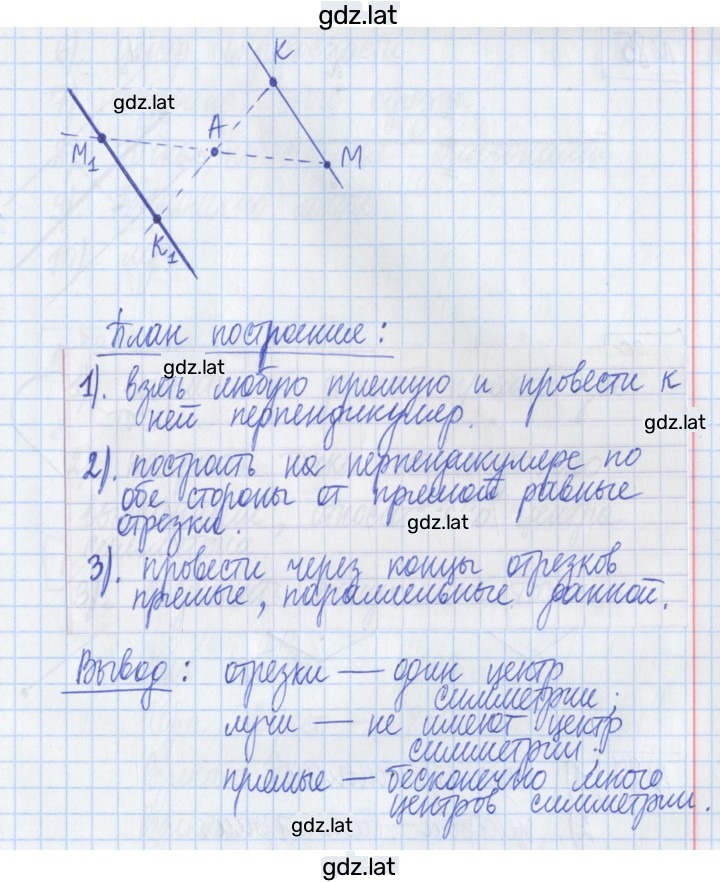 gdz.lat
K
gdz.lat
A
M₁
M
K₁
План построения:
gdz.lat
1). взять любую прямую и провести к
ней перпендикуляр.
gdz.lat
2). построить на перпендикуляре по
обе стороны от прямой равные
отрезки.
gdz.lat
3). провести через концы отрезков
прямые, параллельные данной.
Вывод: отрезки — один центр
симметрии;
лучи — не имеют центр
симметрии;
прямые — бесконечно много
центров симметрии.
gdz.lat
gdz.lat